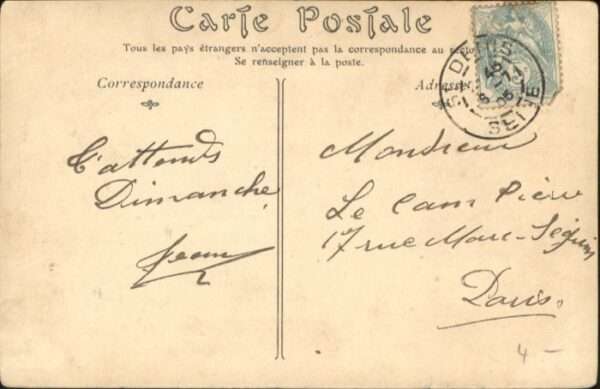 Carte Postale
Tous les pays étrangers n'acceptent pas la correspondance au
Se renseigner à la poste.
Correspondance
Adresse
T'attends
Dimanche
Jean
Monsieur
Le Cam Pierre
17 rue Marc-Séguin
Paris.
4 -
ST DENIS
SEINE